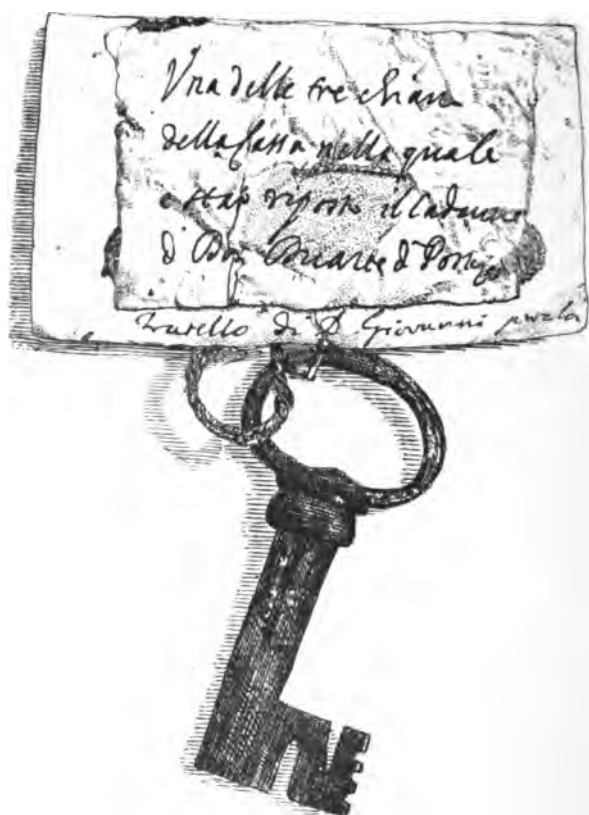 Una delle tre chiavi
della Cassa nella quale
è stato riposto il Cadavere
di Don Duarte di Portugo
Fratello di D. Giovanni